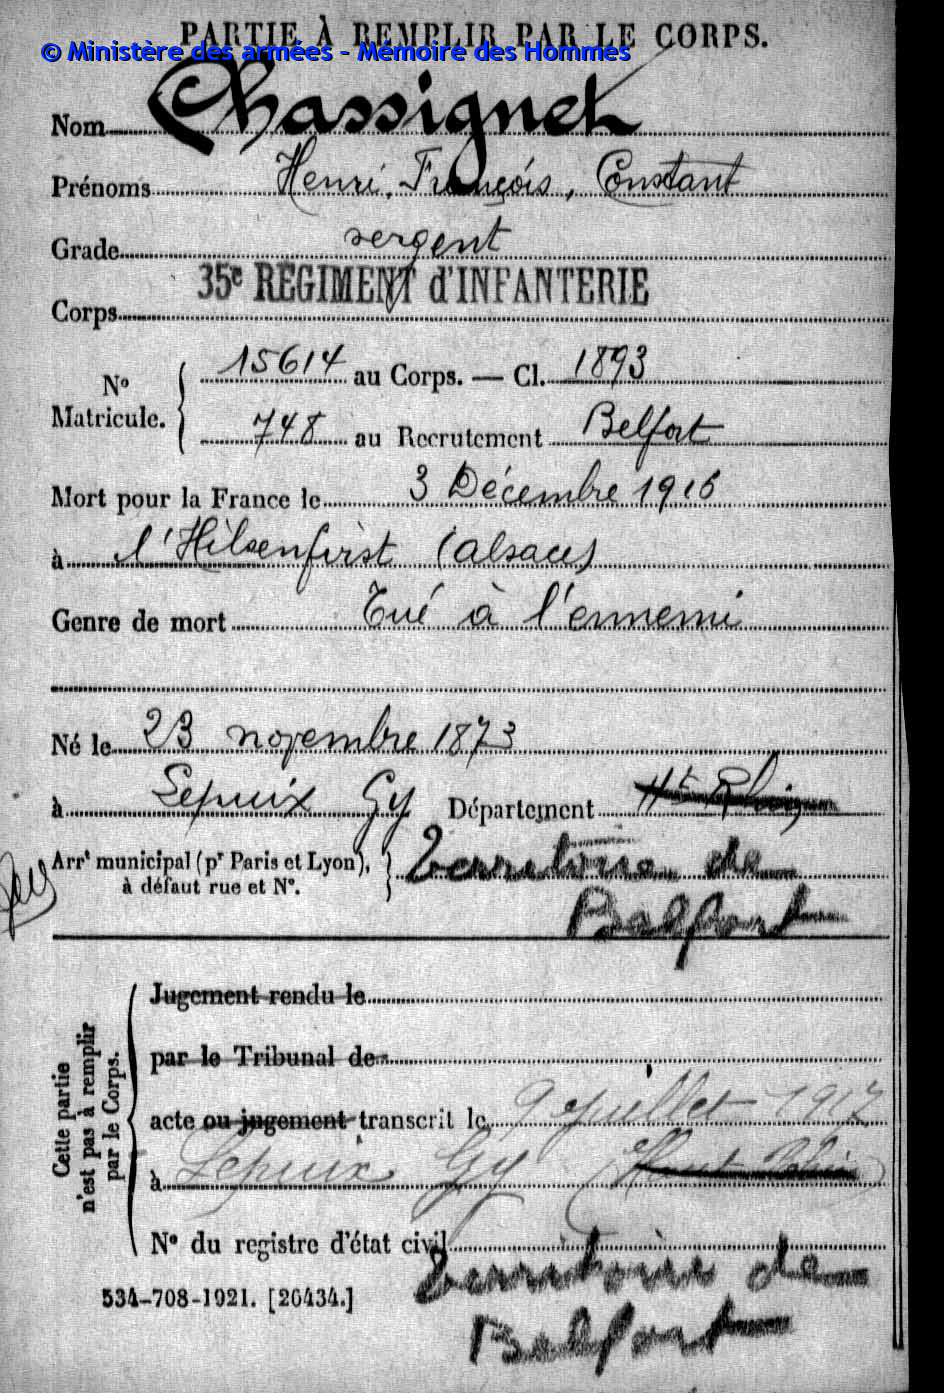 PARTIE À REMPLIR PAR LE CORPS.
© Ministère des armées - Mémoire des Hommes
Nom Chassignet
Prénoms Henri, François, Constant
Grade sergent
Corps 35e RÉGIMENT d'INFANTERIE
No Matricule. 15614 au Corps. — Cl. 1893
748 au Recrutement Belfort
Mort pour la France le 3 Décembre 1916
à l'Hilsenfirst (alsace)
Genre de mort Tué à l'ennemi
Né le 23 novembre 1873
à Lepuix Gy Département Ht Rhin
Arrt municipal (pr Paris et Lyon), à défaut rue et No. Territoire de
Belfort
Cette partie n'est pas à remplir par le Corps.
Jugement rendu le
par le Tribunal de
acte ou jugement transcrit le 9 juillet 1917
à Lepuix Gy (Haut Rhin)
No du registre d'état civil
Territoire de
534-708-1921. [26434.]
Belfort